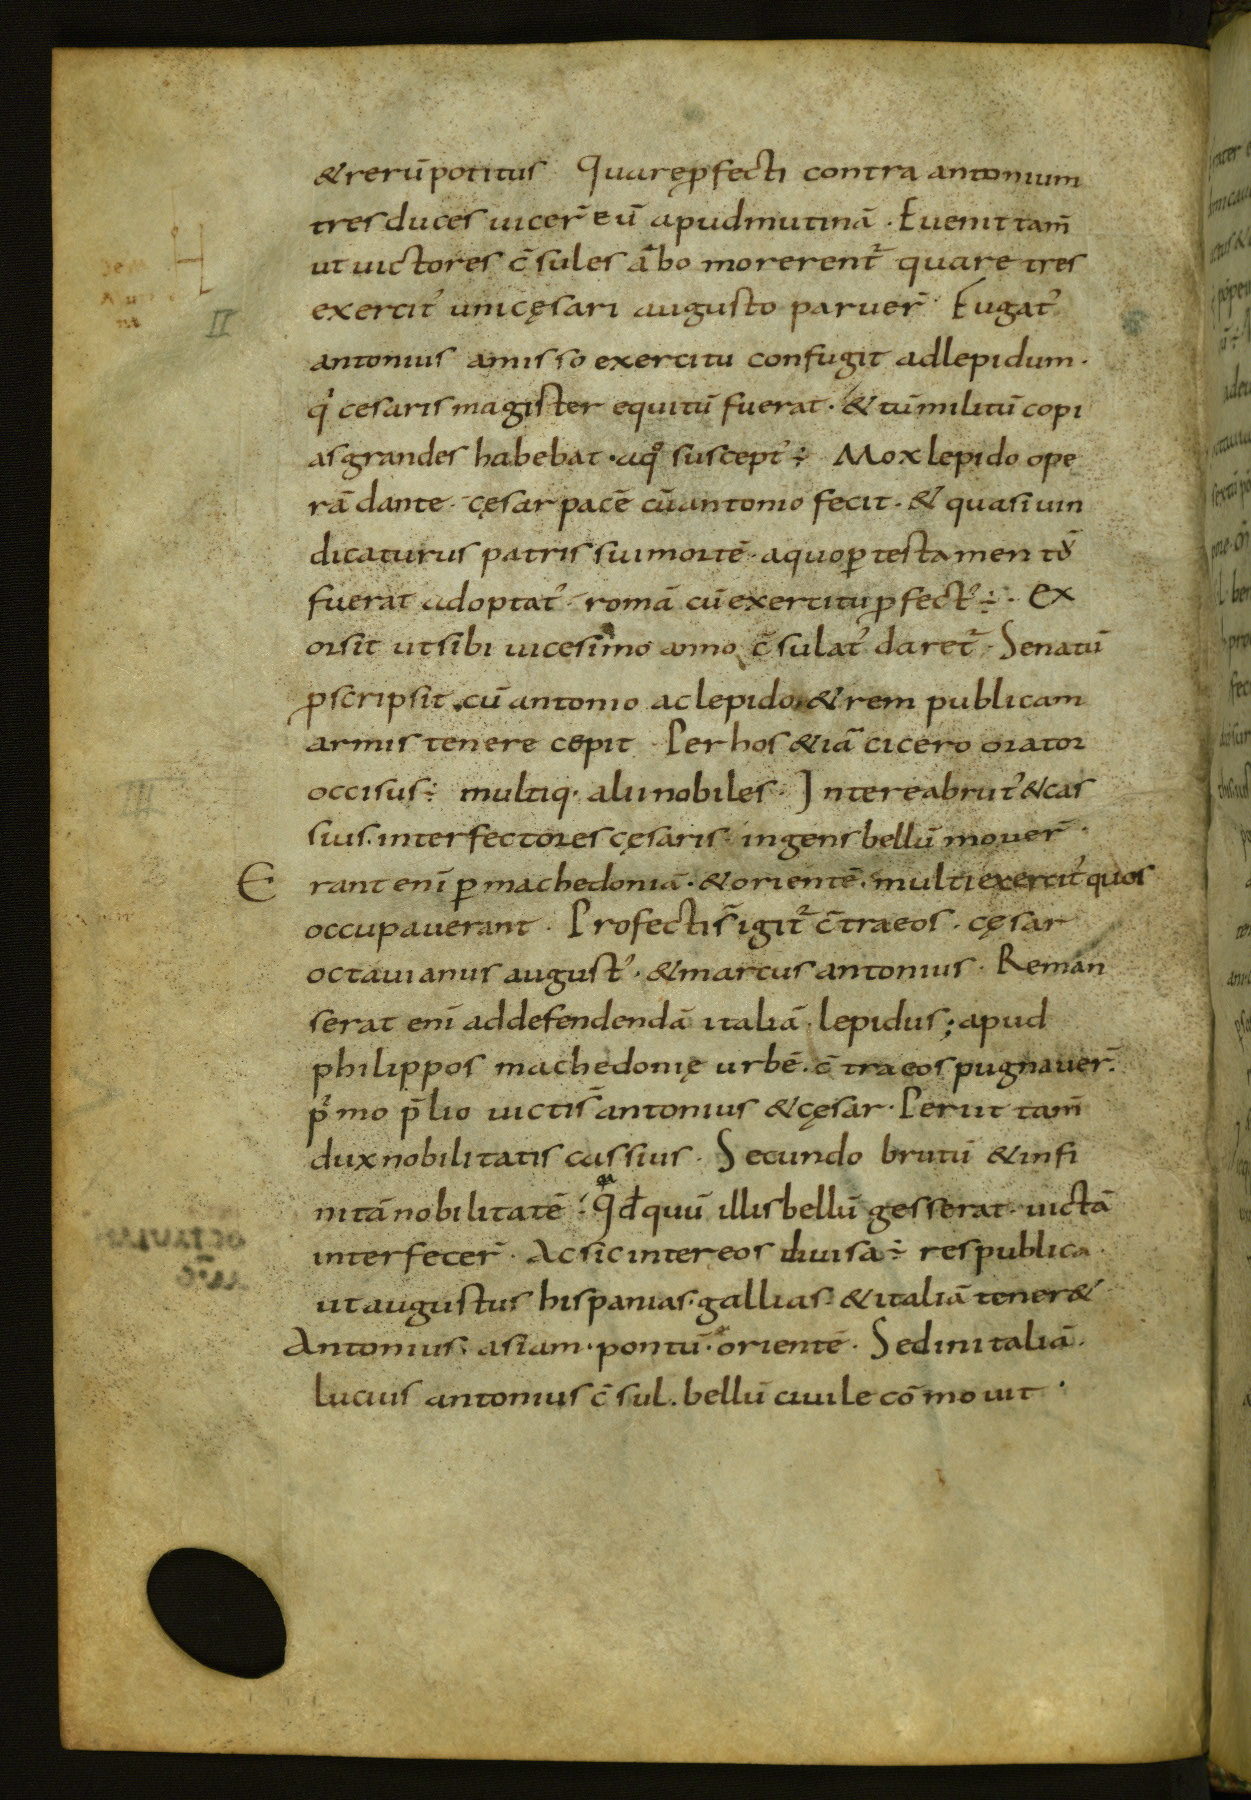 & rerū potitus Quare ꝓfecti contra antonium
tres duces uicer̄ eū apud mutinā · Euenit tam̄
ut uictores c̄sules ābo morerent᷑ quare tres
exercit᾽ uni cęsari augusto paruer̄ · Fugat᾽
antonius amisso exercitu confugit ad lepidum ·
q᾽ cesaris magister equitū fuerat · & tū militū copi
as grandes habebat · a qͦ suscept᾽ ÷ Mox lepido ope
rā dante · cęsar pacē cū antonio fecit · & quasi uin
dicaturus patris sui mortē · a quo ꝑ testamentū
fuerat adoptat᾽ · romā cū exercitu ꝓfect᾽ ÷ · Ex
orsit ut sibi uicesimo anno c̄sulat᾽ daret᷑ · Senatū
ꝓscripsit · cū antonio ac lepido · & rem publicam
armis tenere cepit · Per hos & iā cicero orator
occisus ÷ multiq · alii nobiles · Interea brut᾽ & cas
sius · interfectores cęsaris · ingens bellū mouer̄ ·
E rant eni ꝑ machedoniā · & orientē · multi exercit᾽ quos
occupauerant · Profecti s̄ igit᷑ c̄tra eos · cęsar
octauianus august᾽ · & marcus antonius · Reman
serat eni ad defendendā italiā lepidus ; apud
philippos machedonię urbē · c̄tra eos pugnauer̄ ·
p᾽mo p̄lio uicti s̄ antonius & cęsar · Periit tam̄
dux nobilitatis cassius · Secundo brutū & infi
nitā nobilitatē · q̄ quū illis bellū gesserat · uictā
interfecer̄ · Ac sic inter eos diuisa ÷ res publica ·
ut augustus hispanias · gallias · & italiā tener&
Antonius · asiam · pontū · orientē · Sed in italiā ·
lucius antonius c̄sul · bellū ciuile cōmouit ·
II